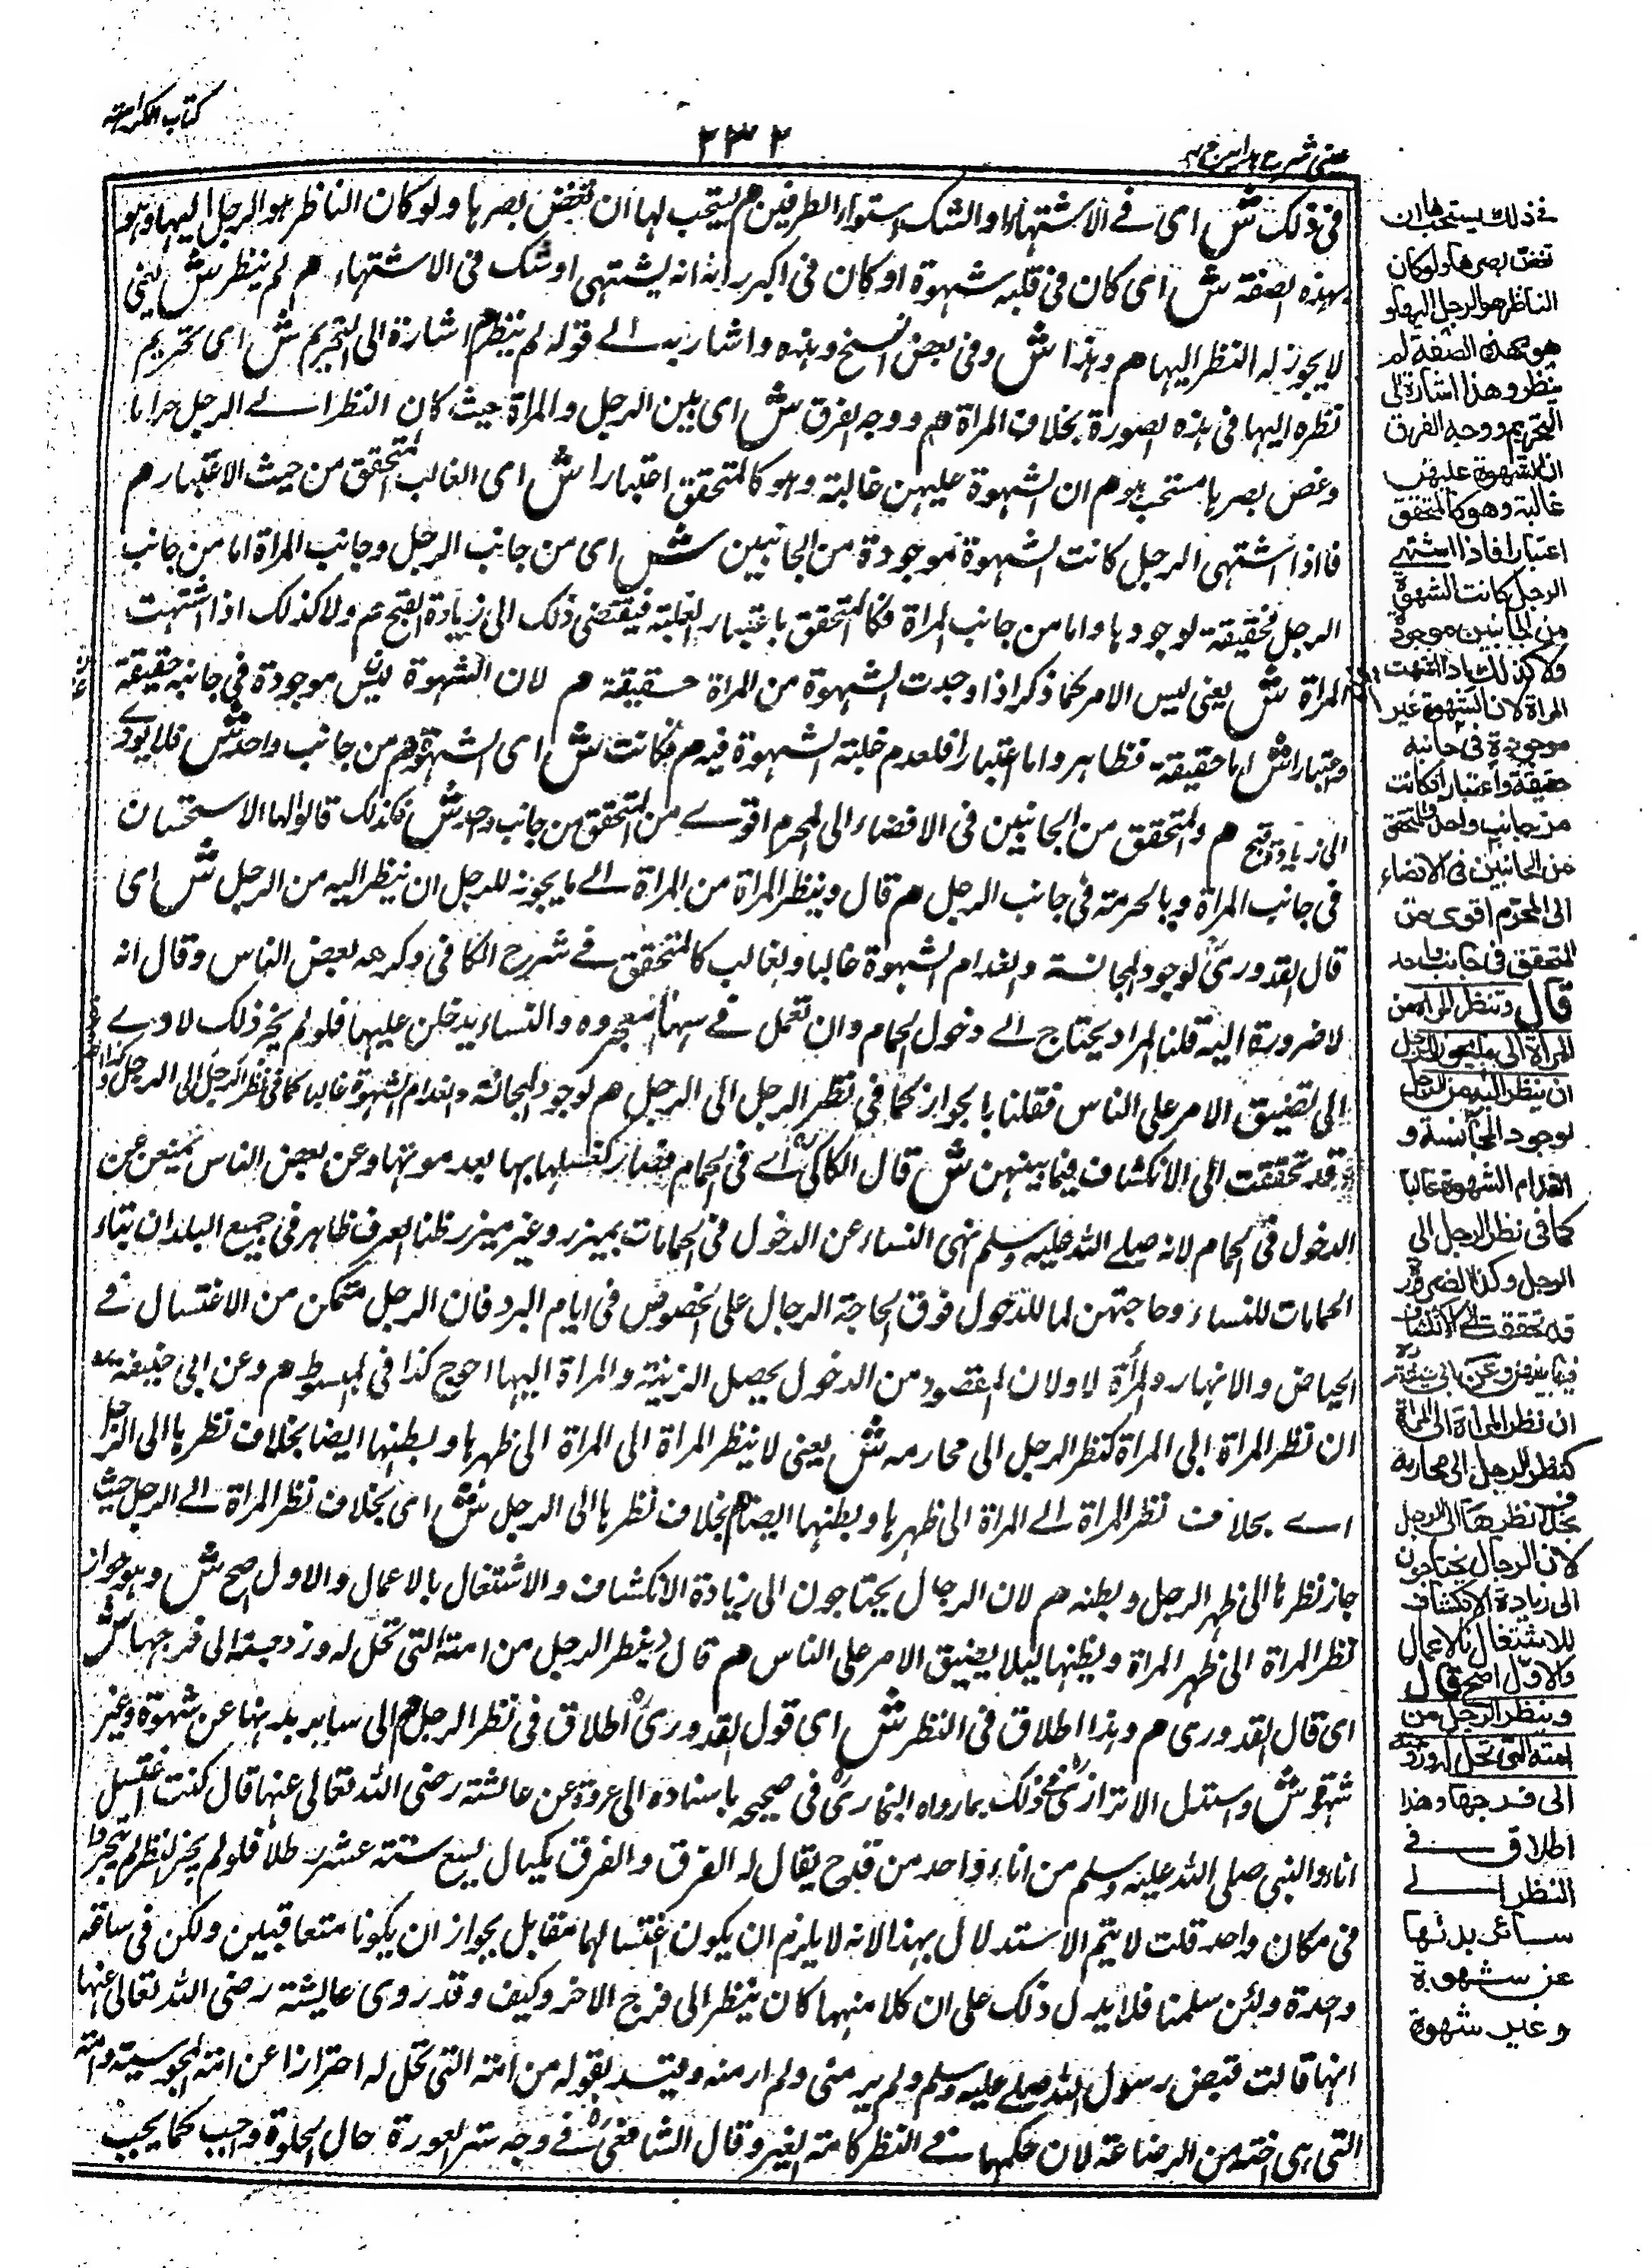 كتاب الكراهية
٢٣٢
عينى شرح هداية ج ٤
فى ذلك ش اى فى الاشتهاء والشك استواء الطرفين هم يستحب لها ان تغض بصرها ولو كان الناظر هو الرجل اليها وهو
بهذه الصفة ش اى كان فى قلبه شهوة او كان فى اكبر رايه انه يشتهى او شك فى الاشتهاء هم لم ينظر ش يعنى
لا يجوز له النظر اليها هم وهذا ش وفى بعض النسخ وهذه واشار به الى قوله لم ينظر هم اشارة الى التحريم ش اى تحريم
نظره اليها فى هذه الصورة بخلاف المراة هم ووجه الفرق ش اى بين الرجل والمراة حيث كان النظر الى الرجل حراما
وغض بصرها مستحب هو هم ان الشهوة عليهن غالبة وهو كالمتحقق اعتبارا ش اى الغالب كالمتحقق من حيث الاعتبار هم
فاذا اشتهى الرجل كانت الشهوة موجودة من الجانبين ش اى من جانب الرجل وجانب المراة اما من جانب
الرجل فحقيقة لوجودها واما من جانب المراة فكالمتحقق باعتبار الغلبة فيقتضى ذلك الى زيادة القبح هم ولا كذلك اذا اشتهت
المراة ش يعنى ليس الامر كما ذكر اذا وجدت الشهوة من المراة حقيقة هم لان الشهوة ليس موجودة فى جانبه حقيقة
واعتبارا ش اما حقيقة فظاهر واما اعتبارا فلعدم غلبة الشهوة فيه هم فكانت ش اى الشهوة هم من جانب واحد ش فلا يودى
الى زيادة قبح هم والمتحقق من الجانبين فى الافضاء الى المحرم اقوى من المتحقق من جانب واحد ش فكذلك قالوا لها الاستحسان
فى جانب المراة وبالحرمة فى جانب الرجل هم قال وينظر المراة من المراة الى ما يجوز للرجل ان ينظر اليه من الرجل ش اى
قال القدورى لوجود المجانسة وانعدام الشهوة غالبا والغالب كالمتحقق فى شرح الكافى وكرهه بعض الناس وقال انه
لا ضرورة اليه قلنا المراد يحتاج الى دخول الحمام وان تعمل فى والنساء يدخلن عليها فلو لم يجز ذلك لادى
الى تضييق الامر على الناس فقلنا بالجواز كما فى نظر الرجل الى الرجل هم لوجود المجانسة وانعدام الشهوة غالبا كما فى نظر الرجل الى الرجل وكذا
الضرورة قد تحققت الى الانكشاف فيما بينهن ش قال الكاكى اى فى الحمام فصار كغسلها بها بعد موتها وعن بعض الناس يمنعن عن
الدخول فى الحمام لانه صلى الله عليه وسلم نهى النساء عن الدخول فى الحمامات بميزر وغير ميزر قلنا العرف ظاهر فى جميع البلدان بناء
الحمامات للنساء وحاجتهن لما للدخول فوق الحاجة الرجال على الخصوص فى ايام البرد فان الرجل متمكن من الاغتسال فى
الحياض والانهار والمرأة لا ولان المقصود من الدخول يحصل الزينة والمراة اليها احوج كذا فى المبسوط هم وعن ابى حنيفة رح
ان نظر المراة الى المراة كنظر الرجل الى محارمه ش يعنى لا ينظر المراة الى المراة الى ظهرها وبطنها ايضا بخلاف نظرها الى الرجل
اى بخلاف نظر المراة الى المراة الى ظهرها وبطنها ايضا هم بخلاف نظرها الى الرجل ش اى بخلاف نظر المراة الى الرجل حيث
جاز نظرها الى ظهر الرجل وبطنه هم لان الرجال يحتاجون الى زيادة الانكشاف والاشتغال بالاعمال والاول اصح ش وهو جواز
نظر المراة الى ظهر المراة وبطنها ليلا يضيق الامر على الناس هم قال وينظر الرجل من امته التى تحل له وزوجته الى فرجها ش
اى قال القدورى هم وهذا اطلاق فى النظر ش اى قول القدورى اطلاق فى نظر الرجل هم الى ساير بدنها عن شهوة وغير
شهوة ش واستدل الاترازى فى ذلك بما رواه البخارى فى صحيحه باسناده الى عروة عن عائشة رضى الله تعالى عنها قال كنت اغتسل
انا والنبى صلى الله عليه وسلم من اناء واحد من قدح يقال له الفرق والفرق مكيال يسع ستة عشر رطلا فلو لم يجز النظر لم يتجردا
فى مكان واحد قلت لا يتم الاستدلال بهذا لانه لا يلزم ان يكون اغتسالهما مقابل بجواز ان يكونا متعاقبين ولكن فى ساعة
واحدة ولئن سلمنا فلا يدل ذلك على ان كلا منهما كان ينظر الى فرج الاخر وكيف وقد روى عايشة رضى الله تعالى عنها
انها قالت قبض رسول الله صلى الله عليه وسلم ولم ير منى ولم ار منه وقيد بقوله من امته التى تحل له احترازا عن امته المجوسية وامته
التى هى اخته من الرضاعة لان حكمها فى النظر كامة الغير وقال الشافعى فى وجه ستر العورة حال الخلوة واجب كما يجب
فى ذلك يستحب لها ان
تغض بصرها ولو كان
الناظر هو الرجل اليها و
هو بهذه الصفة لم
ينظر وهذا اشارة الى
التحريم ووجه الفرق
ان الشهوة عليهن
غالبة وهو كالمتحقق
اعتبارا فاذا اشتهى
الرجل كانت الشهوة
من الجانبين موجودة
ولا كذلك اذا اشتهت
المراة لان الشهوة غير
موجودة فى جانبه
حقيقة واعتبارا فكانت
من جانب واحد والمتحقق
من الجانبين فى الافضاء
الى المحرم اقوى من
المتحقق فى جانب واحد
قال وتنظر المراة من
المراة الى ما يجوز للرجل
ان ينظر اليه من الرجل
لوجود المجانسة و
انعدام الشهوة غالبا
كما فى نظر الرجل الى
الرجل وكذا الضرورة
قد تحققت الى الانكشاف
فيما بينهن وعن ابى حنيفة رح
ان نظر المراة الى المراة
كنظر الرجل الى محارمه
بخلاف نظرها الى الرجل
لان الرجال يحتاجون
الى زيادة الانكشاف
للاشتغال بالاعمال
والاول اصح قال
وينظر الرجل من
امته التى تحل له وزوجته
الى فرجها وهذا
اطلاق فى
النظر الى
سائر بدنها
عن شهوة
وغير شهوة